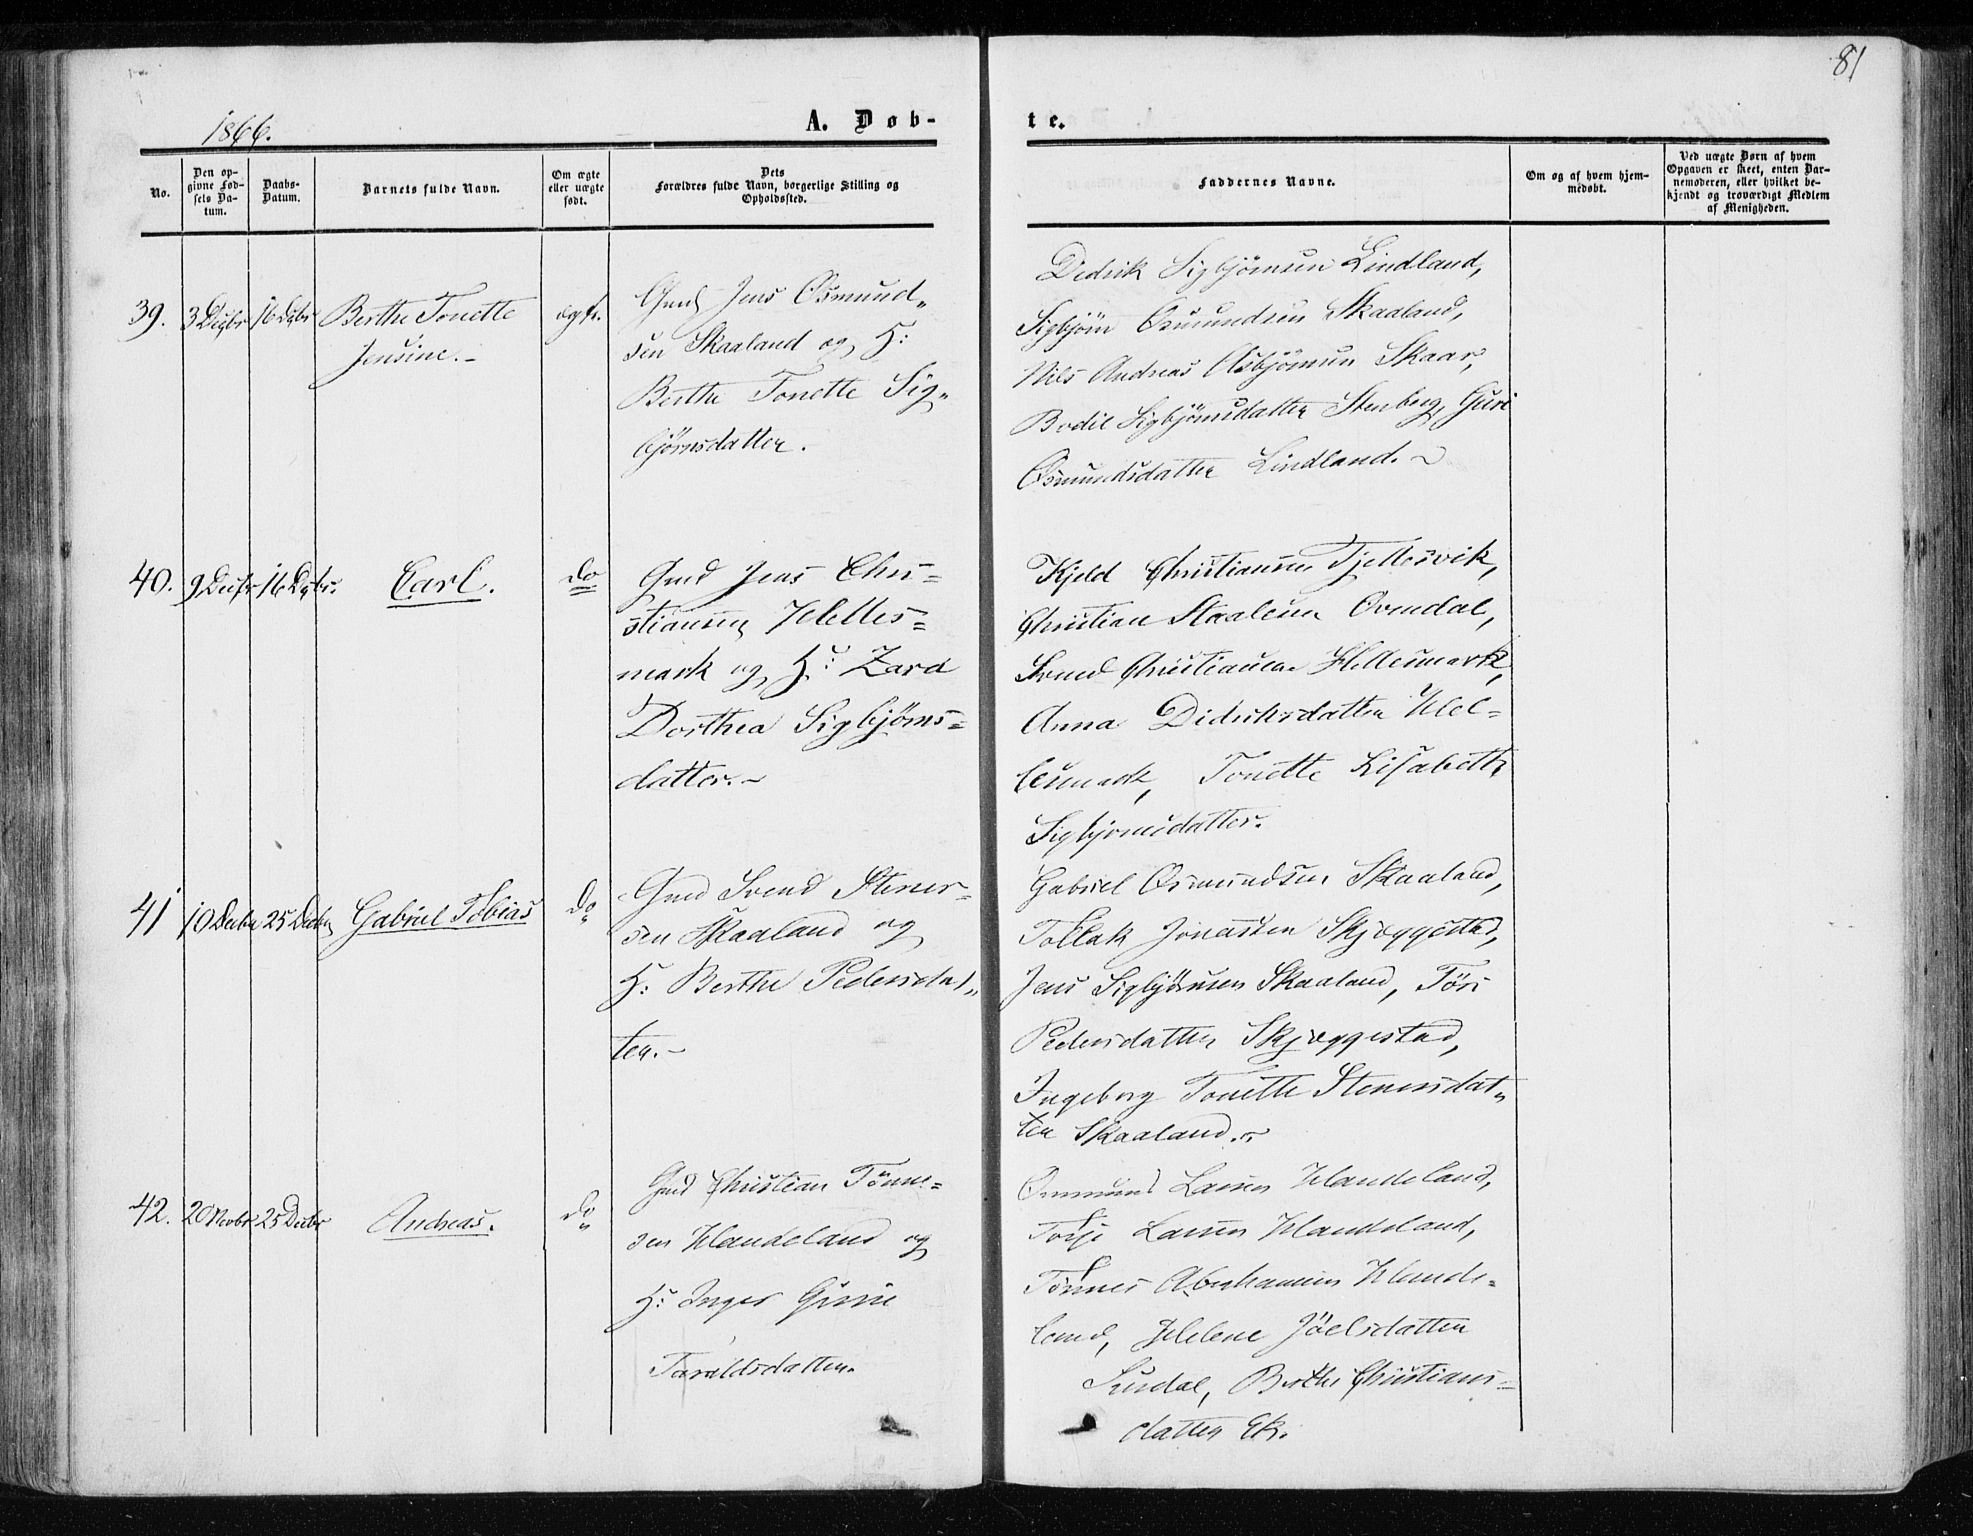 81
1866.
A. Døb-
te.
No.
Den op-
givne Fød-
sels Da-
tum.
Daabs-
Datum.
Barnets fulde Navn.
Om ægte
eller uægte
født.
Dets
Forældres fulde Navn, borgerlige Stilling og
Opholdssted.
Faddernes Navne.
Om og af hvem hjem-
medøbt.
Ved uægte Børn af hvem
Opgaven er skeet, enten Bar-
nemoderen, eller hvilket be-
kjendt og troværdigt Medlem
af Menigheden.
39.
16 Dcbr
Berthe Tonette
Jensine.
Gmd Jens Osmund„
sen Skaaland og H:
Berthe Tonette Sig„
bjørnsdatter.
Didrik Sigbjørnsen Lindland,
Sigbjørn Osmundsen Skaaland,
Nils Andreas Asbjørnsen Skaar,
Bodil Sigbjørnsdatter Stenberg, Guri
Osmundsdatter Lindland.
40.
Carl.
do
Gmd Jens Chri=
stiansen Helles=
mark og H: Zara
Dorthea Sigbjørns=
datter.
Kjeld Christiansen
Christian Staalesen
Svend Christiansen Hellesmark,
Anna Didriksdatter Hel=
lesmark, Tonette Lisabeth
Sigbjørnsdatter.
41
10 Decbr
25 Decbr
Gabriel Tobias
Do
Gmd Svend Stener-
sen Skaaland og
H: Berthe Pedersdat„
ter.
Gabriel Osmundsen Skaaland,
Tollak Jonassen Skjæggestad,
Jens Sigbjørnsen Skaaland, Tøri
Pedersdatter Skjæggestad,
Ingeborg Tonette Stenersdat„
ter Skaaland.
42.
20 Novbr
25 Decbr
Andreas.
do
Gmd Christian Tønne=
sen Handeland og
H: Inger Gurine
Taraldsdatter.
Ommund Larsen Handeland,
Torje Larsen Handeland,
Tønnes Abrahamsen Hande=
land, Helene Joelsdatter
Surdal, Berthe Christians=
datter Ek.